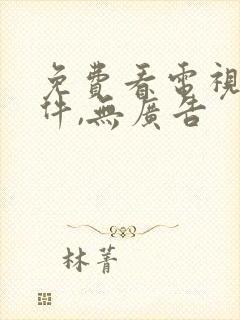 免費看電視
件,無廣告
林菁